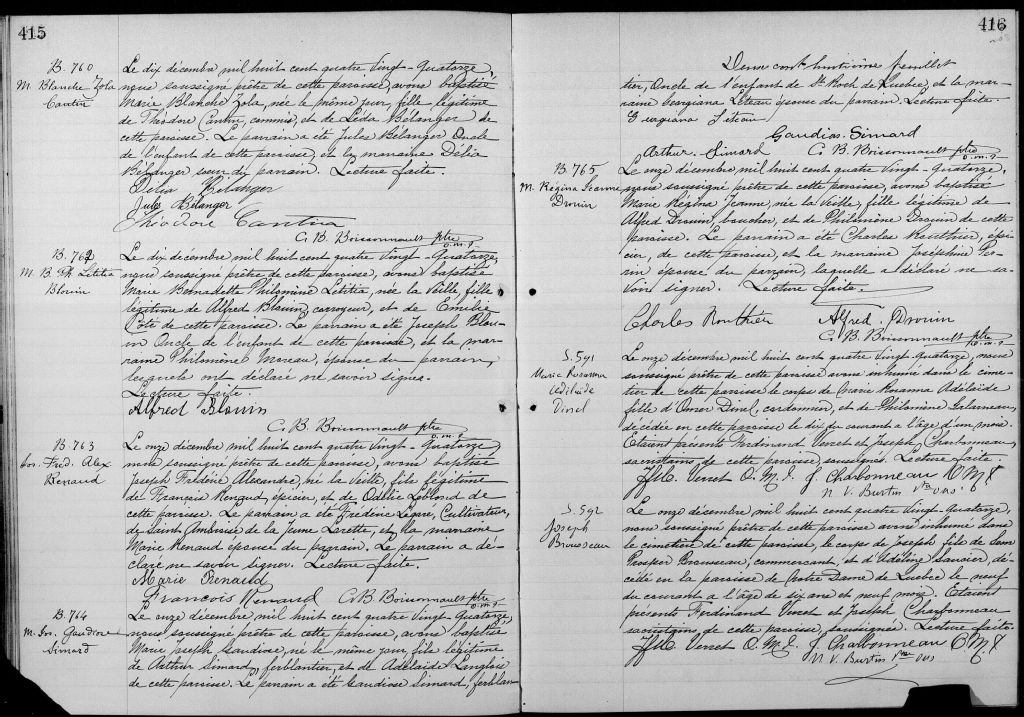 415
B. 760
M. Blanche Zola
Cantin
Le dix décembre mil huit cent quatre vingt-quatorze,
nous soussigné prêtre de cette paroisse, avons baptisé
Marie Blanche Zola, née le même jour, fille légitime
de Théodore Cantin, commis, et de Léda Bélanger de
cette paroisse. Le parrain a été Jules Bélanger Oncle
de l'enfant de cette paroisse, et la marraine Délia
Bélanger, sœur du parrain. Lecture faite.
Délia Bélanger
Jules Bélanger
Théodore Cantin
C. B. Boissonnault ptre
o.m.i
B. 762
M. B. Ph. Letitia
Blouin
Le dix décembre mil huit cent quatre vingt-quatorze,
nous soussigné prêtre de cette paroisse, avons baptisé
Marie Bernadette Philomène Letitia, née la veille, fille
légitime de Alfred Blouin, corroyeur, et de Emilie
Coté de cette paroisse. Le parrain a été Joseph Blou-
in Oncle de l'enfant de cette paroisse, et la mar-
raine Philomène Moreau, épouse du parrain,
lesquels ont déclaré ne savoir signer.
Lecture faite.
Alfred Blouin
C. B. Boissonnault ptre
o.m.i
B. 763
Jos. Fred. Alex.
Renaud
Le onze décembre mil huit cent quatre vingt-quatorze
nous soussigné prêtre de cette paroisse, avons baptisé
Joseph Frédéric Alexandre, né la veille, fils légitime
de François Renaud, épicier, et de Odélie Leblond de
cette paroisse. Le parrain a été Frédéric Légaré, Cultivateur,
de Saint Ambroise de la Jeune Lorette, et la marraine
Marie Renaud épouse du parrain. Le parrain a dé-
claré ne savoir signer. Lecture faite.
Marie Renaud
Francois Renaud C. B. Boissonnault ptre
o.m.i
B. 764
M. Jos. Gaudiose
Simard
Le onze décembre mil huit cent quatre vingt-quatorze
nous soussigné prêtre de cette paroisse, avons baptisé
Marie Joseph Gaudiose, né le même jour, fils légitime
de Arthur Simard, ferblantier, et de Adelaide Langlois
de cette paroisse. Le parrain a été Gaudiose Simard, ferblan-
416
Deux cent huitième feuillet
tier, Oncle de l'enfant de St Roch de Quebec, et la mar-
raine Georgiana Liteau épouse du parrain. Lecture faite.
Georgiana Liteau
Gaudias. Simard
Arthur. Simard C. B. Boissonnault ptre
o.m.i
B. 765
M. Régina Jeanne
Drouin
Le onze décembre mil huit cent quatre vingt-quatorze,
nous soussigné prêtre de cette paroisse, avons baptisé
Marie Régina Jeanne, née la veille, fille légitime de
Alfred Drouin, boucher, et de Philomène Drouin de cette
paroisse. Le parrain a été Charles Routhier, épi-
cier, de cette paroisse, et la marraine Joséphine Po-
rin épouse du parrain, laquelle a déclaré ne sa-
voir signer. Lecture faite.
Charles Routhier Alfred. Drouin
C. B. Boissonnault ptre
o.m.i
S. 591
Marie Rosanna
Adélaide
Dinel
Le onze décembre mil huit cent quatre vingt-quatorze, nous
soussigné prêtre de cette paroisse avons inhumé dans le cime-
tière de cette paroisse le corps de Marie Rosanna Adélaide
fille d'Omer Dinel, cordonnier, et de Philomène Falardeau,
décédée en cette paroisse le dix du courant à l'âge d'un mois.
Etaient présents Ferdinand Verret et Joseph Charbonneau,
sacristains, de cette paroisse, soussignés. Lecture faite.
Ffd. Verret O. M. I. J. Charbonneau O M I
N. V. Burtin Ptre OMI
S. 592
Joseph
Brousseau
Le onze décembre mil huit cent quatre vingt-quatorze,
nous soussigné prêtre de cette paroisse avons inhumé dans
le cimetière de cette paroisse, le corps de Joseph fils de feu
Prosper Brousseau, commerçant, et d'Adéline Savoier, dé-
cédé en la paroisse de Notre Dame de Quebec le neuf
du courant à l'âge de six ans et neuf mois. Etaient
présents Ferdinand Verret et Joseph Charbonneau
sacristains, de cette paroisse, soussignés. Lecture faite.
Ffd. Verret O. M. I. J. Charbonneau O M I
N. V. Burtin Ptre OMI